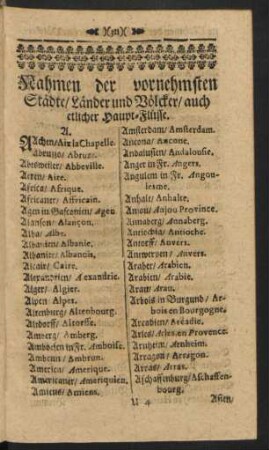 Nahmen der vornehmsten
Städte/ Länder und Völcker/ auch
etlicher Haupt-Flüsse.
A.
AAchen/ Aix la Chapelle.
Abruzzo/ Abruz.
Abbeville.
Africa/ Afrique.
Africaner/ Affricain.
Agen in Gasconien/ Agen
Alanson/ Alançon.
Alba/ Albe.
Albanien/ Albanie.
Albaniter/ Albanois.
Alcair/ Caire.
Alexandrien/ Alexandrie.
Algier/ Algier.
Alpen/ Alpes.
Altenburg/ Altenbourg.
Altdorff/ Altorffe.
Amberg/ Amberg.
Amboesen in Fr. Amboise.
Ambrun/ Ambrun.
America/ Amerique.
Americaner/ Ameriquien.
Amiens/ Amiens.
Amsterdam/ Amsterdam.
Ancona/ Ancone.
Andalusien/ Andalousie.
Anger in Fr. Angers.
Angulem in Fr. Angou-
lesme.
Anhalt/ Anhalte.
Anjou Province.
Annaberg/ Annaberg.
Antiochia/ Antioche.
Antorff/ Anvers.
Antwerpen/ Anvers.
Araber/ Arabien.
Arabien/ Arabie.
Arau/ Arau.
Arbois in Burgund/ Ar-
bois en Bourgogne.
Arcadien/ Arcadie.
Arles/ Arles en Provence.
Arnheim/ Arnheim.
Arragon/ Arragon.
Arras/ Arras.
Aschaffenburg/ Aschaffen-
bourg.
U 4
Asien/